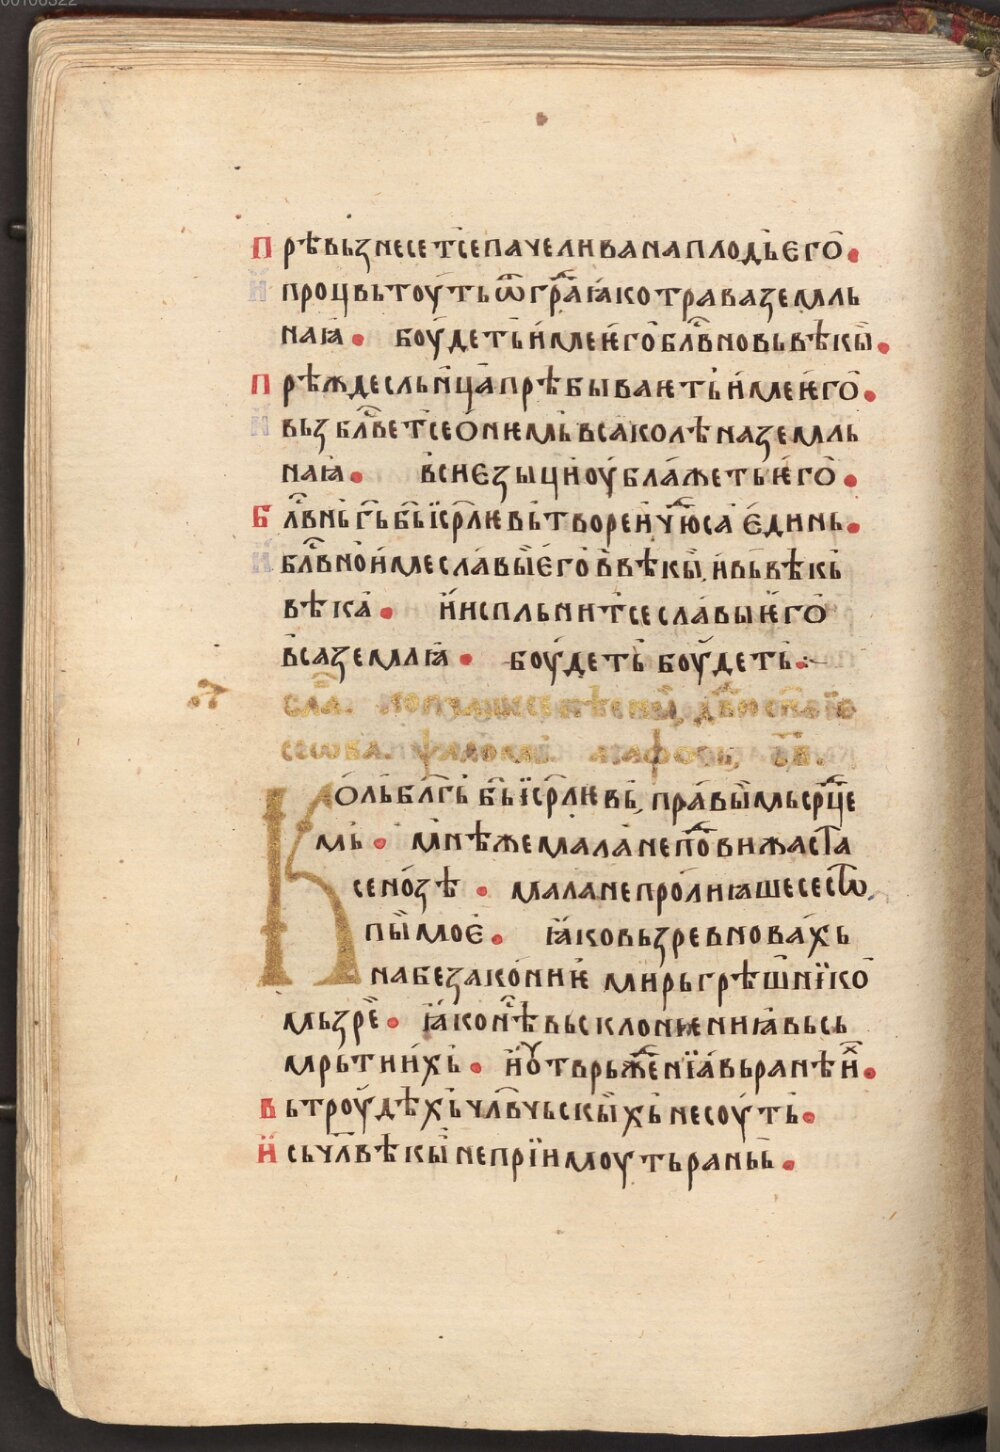 00106322
Прѣвьзнесетсе паче ливана плодь ѥго.
И процвьтоуть ѿ град꙯а ꙗко трава земль
наꙗ. боудеть име ѥго блв҃но вь вѣкы.
Прѣжде слн҃ца прѣбываѥть име ѥго.
И вьзблв҃етсе о нѥмь вса колѣна земль
наꙗ. вси ѥзыци оублажеть ѥго.
Блв҃нь гь҃ бь҃ їсрл҃ѥвь твореи чюдⷭ҇са єдинь.
И блв҃но име славы єго в вѣкы, и вь вѣкь
вѣка. и испльнитсе славы ѥго
вса земла ꙗ. боудеть боудеть:~
сла҃.
псалⷨ
Коль блг҃ь бь҃ їсрл҃ѥвь, правымь срⷣце
мь. мнѣже мала не поⷣвижаста
се нозѣ. мала не пролиꙗше се стѡ
пы моє. ꙗко вьзревновахь
на безаконниѥ мирь грѣшнїко
мь зрѐ. ꙗко нѣⷭ вьсклонѥниꙗ вь сь
мрьти ихь. и оутврьжⷣенїа вь ранѣ иⷯ.
Вь троудѣхь члв҃чьскыхь не соуть.
И сь члв҃кы не прїимоуть раньь.